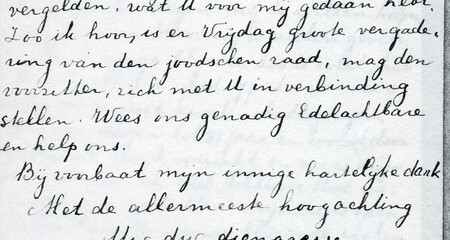 vergelden, wat U voor mij gedaan hebt.
Zoo ik hoor, is er Vrijdag groote vergade-
ring van den joodschen raad, mag den
voorzitter, zich met U in verbinding
stellen. Wees ons genadig Edelachtbare
en help ons.
Bij voorbaat mijn innige hartelijke dank
Met de allermeeste hoogachting
Uw dw dienaresse